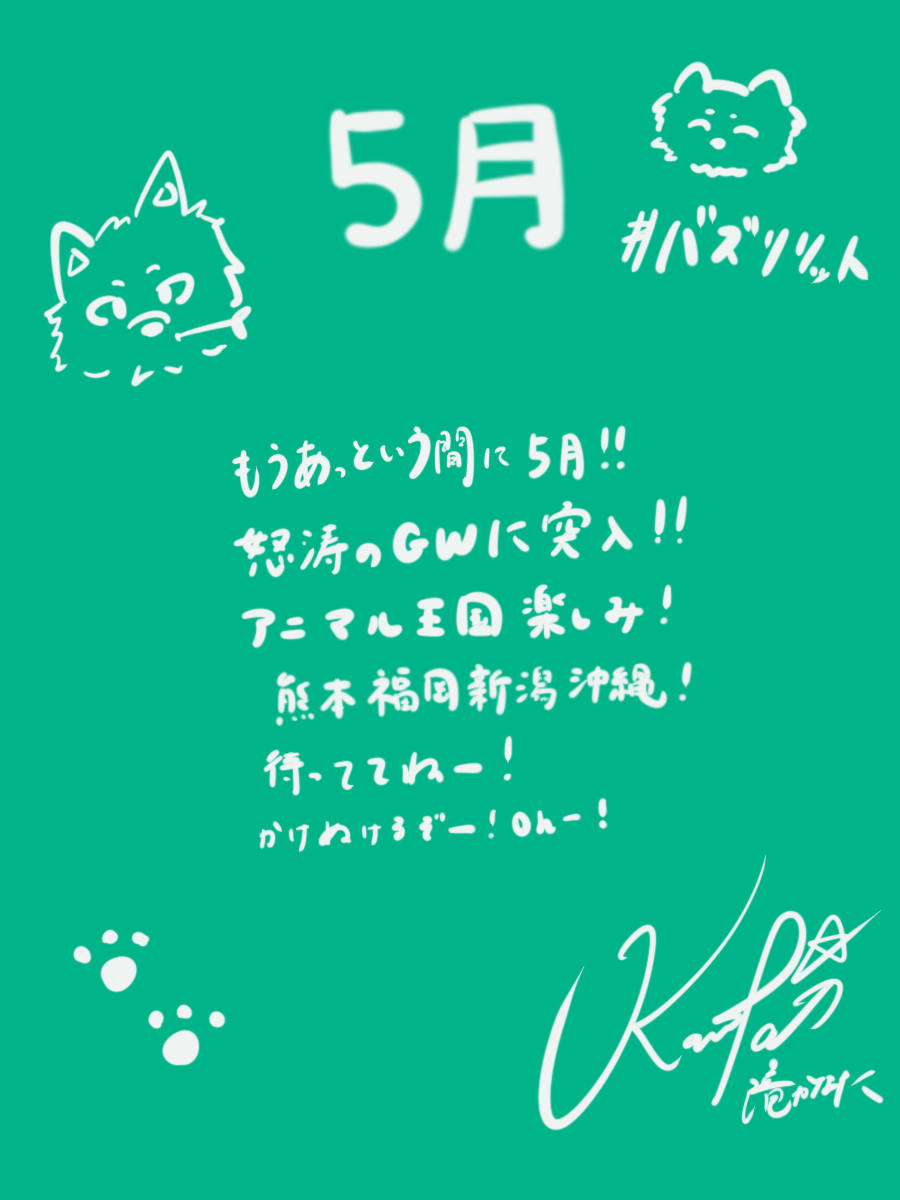 5月
#バズリリット
もうあっという間に5月!!
怒涛のGWに突入!!
アニマル王国楽しみ!
熊本福岡新潟沖縄!
待っててねー!
かけぬけるぞー!Ohー!